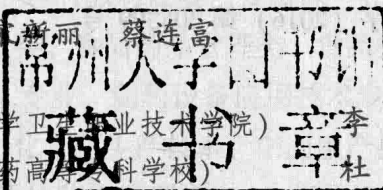 新丽 蔡连富
常州大学图书馆
学卫 业技术学院) 李
藏书章
药高 科学校) 杜